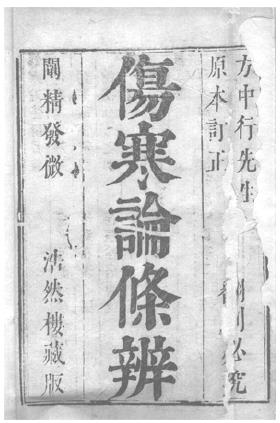 方中行先生
原本訂正
必究
傷寒論條辨
闡精發微
浩然樓藏版